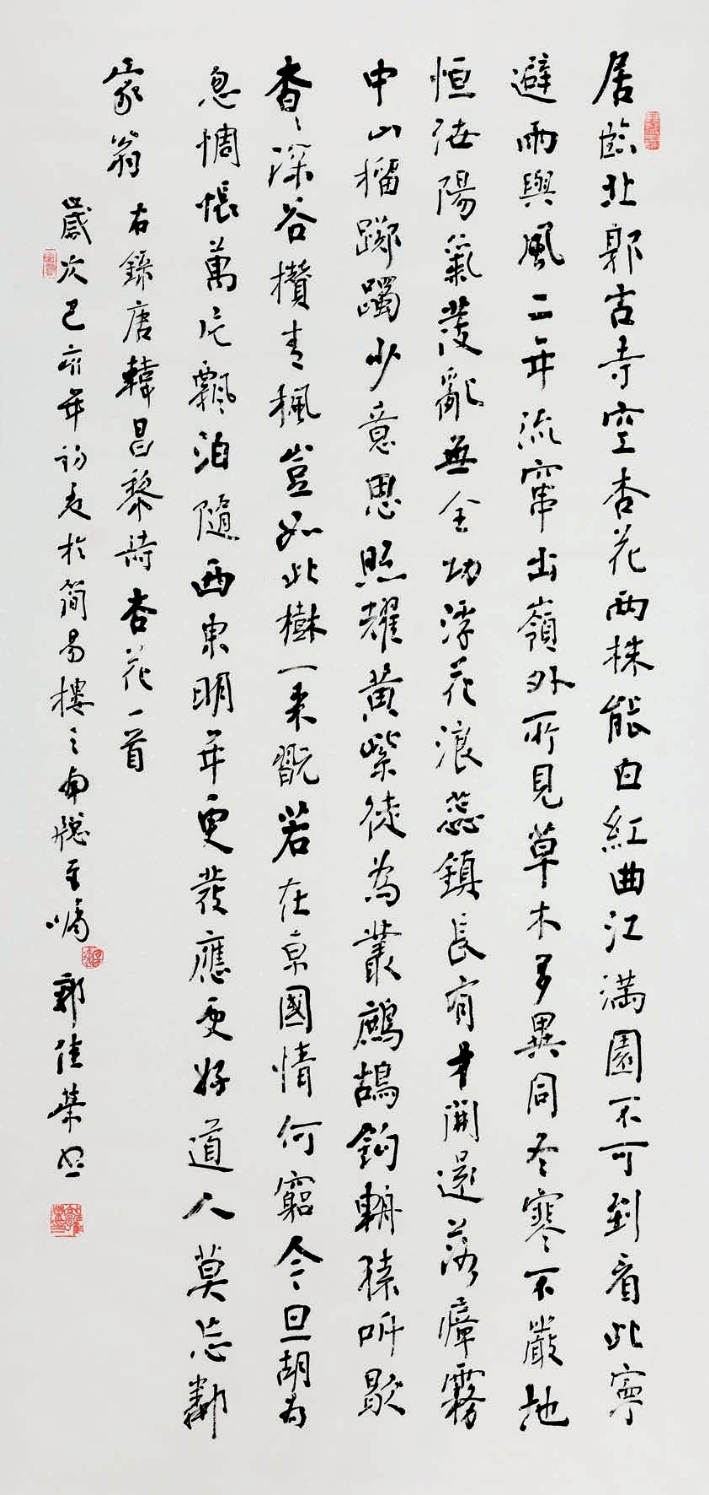 居臨北郭古寺空杏花兩株能白紅曲江滿園不可到看此寧
避雨與風二年流竄出嶺外所見草木多異同冬寒不嚴地
恒泄陽氣發亂無全功浮花浪蕊鎮長有才開還落瘴霧
中山榴躑躅少意思照耀黃紫徒為叢鷓鴣鉤輈猿叫歇
杳杳深谷攢青楓豈如此樹一來翫若在京國情何窮今旦胡為
忽惆悵萬片飄泊隨西東明年更發應更好道人莫忘鄰
家翁
右錄唐韓昌黎詩杏花一首
歲次己亥年初夏於簡易樓之南窗玉嶠
郭佳榮